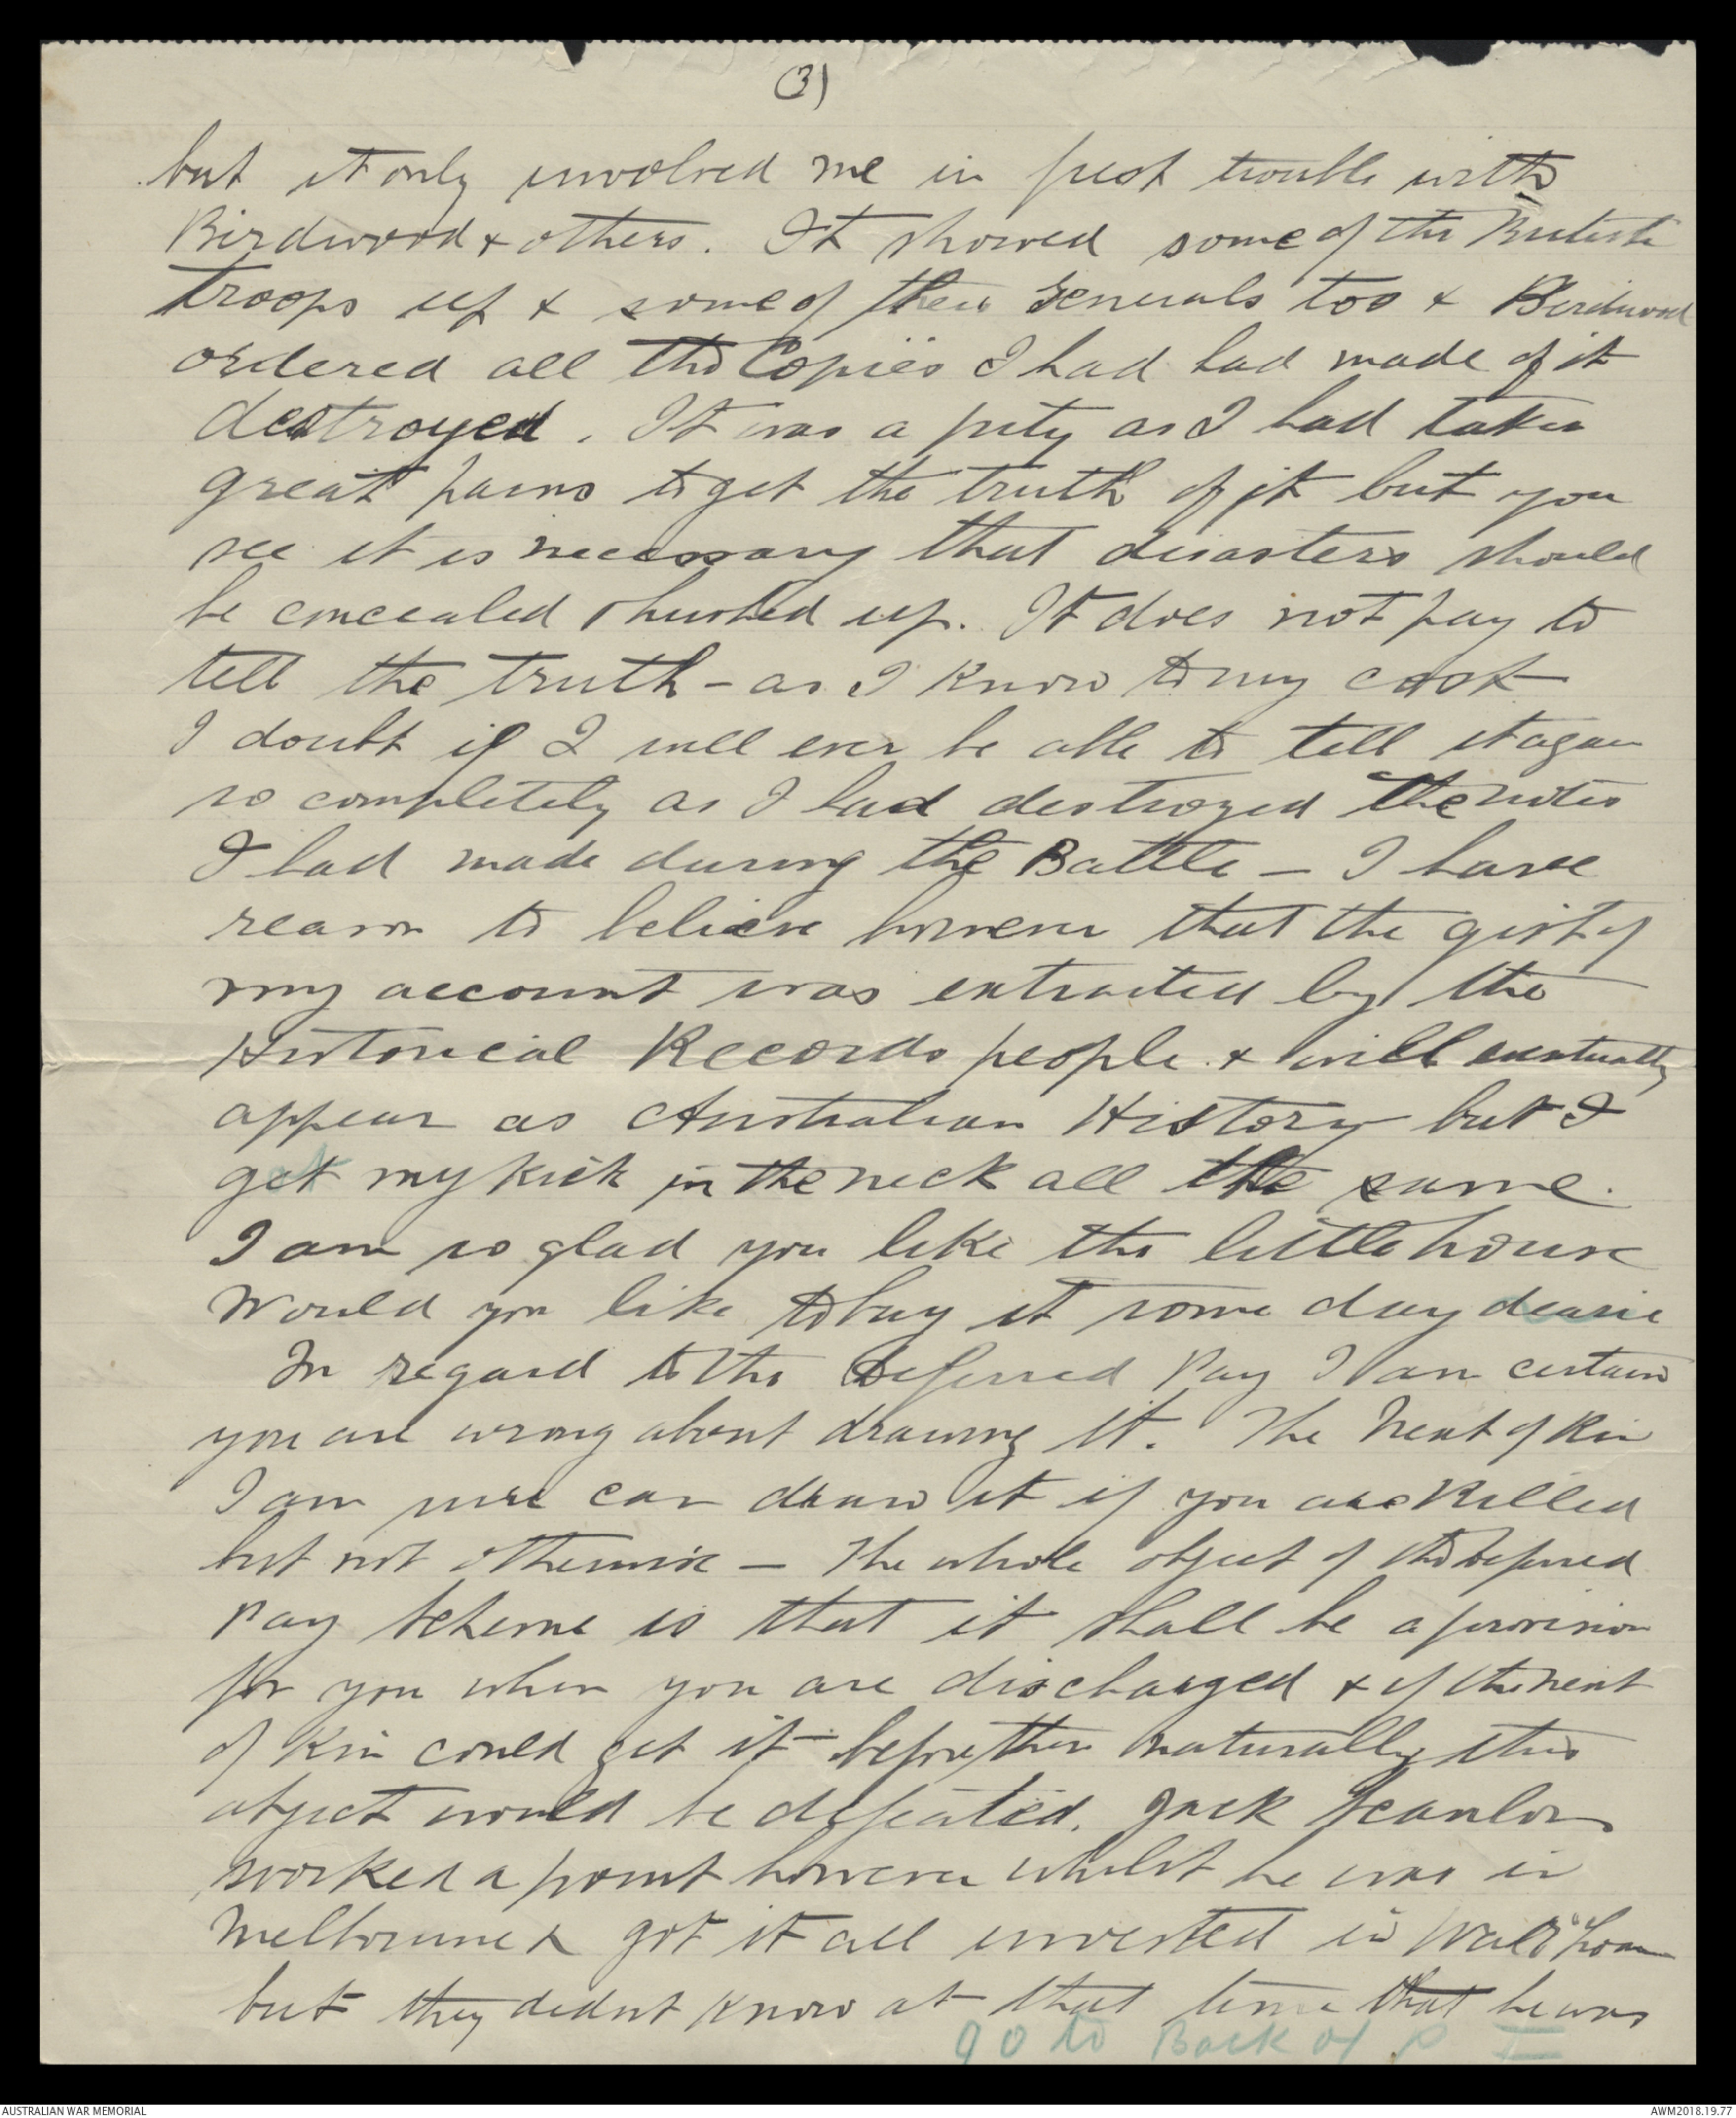 (3)
but it only involved me in fresh trouble with
Birdwood & others. It showed some of the British
Troops up & some of their Generals too & Birdwood
ordered all the Copies I had had made of it
destroyed. It was a pity as I had taken
great pains to get the truth of it but you
see it is necessary that disasters should
be concealed & hushed up. It does not pay to
tell the truth - as I know to my cost
I doubt if I will ever be able to tell it again
so completely as I had destroyed the notes
I had made during the Battle - I have
reason to believe however that the gist of
my account was extracted by the
Historical Records people & will eventually
appear as Australian History but I
got my kick in the neck all the same.
I am so glad you like the little house
Would you like to buy it some day dearie
In regard to the Deferred Pay I am certain
you are wrong about drawing it. The Next of Kin
I am sure can draw it if you are Killed
but not otherwise - The whole object of the Deferred
Pay Scheme is that it shall be a provision
for you when you are discharged & if the next
of Kin could get it before then naturally this
object would be defeated. Jack Scanlon
worked a point however whilst he was in
Melbourne & got it all invested in War Loan
but they didnt know at that time that he was
go to Back of P II
AUSTRALIAN WAR MEMORIAL
AWM2018.19.77